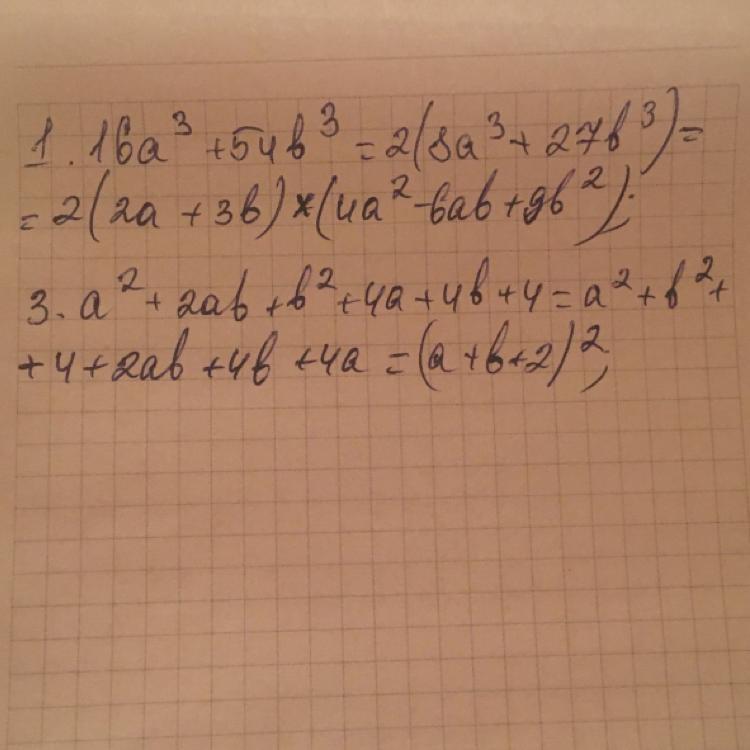 1. 16a³ + 54b³ = 2(8a³ + 27b³) =
= 2(2a + 3b) × (4a² - 6ab + 9b²);
3. a² + 2ab + b² + 4a + 4b + 4 = a² + b² +
+ 4 + 2ab + 4b + 4a = (a + b + 2)²;